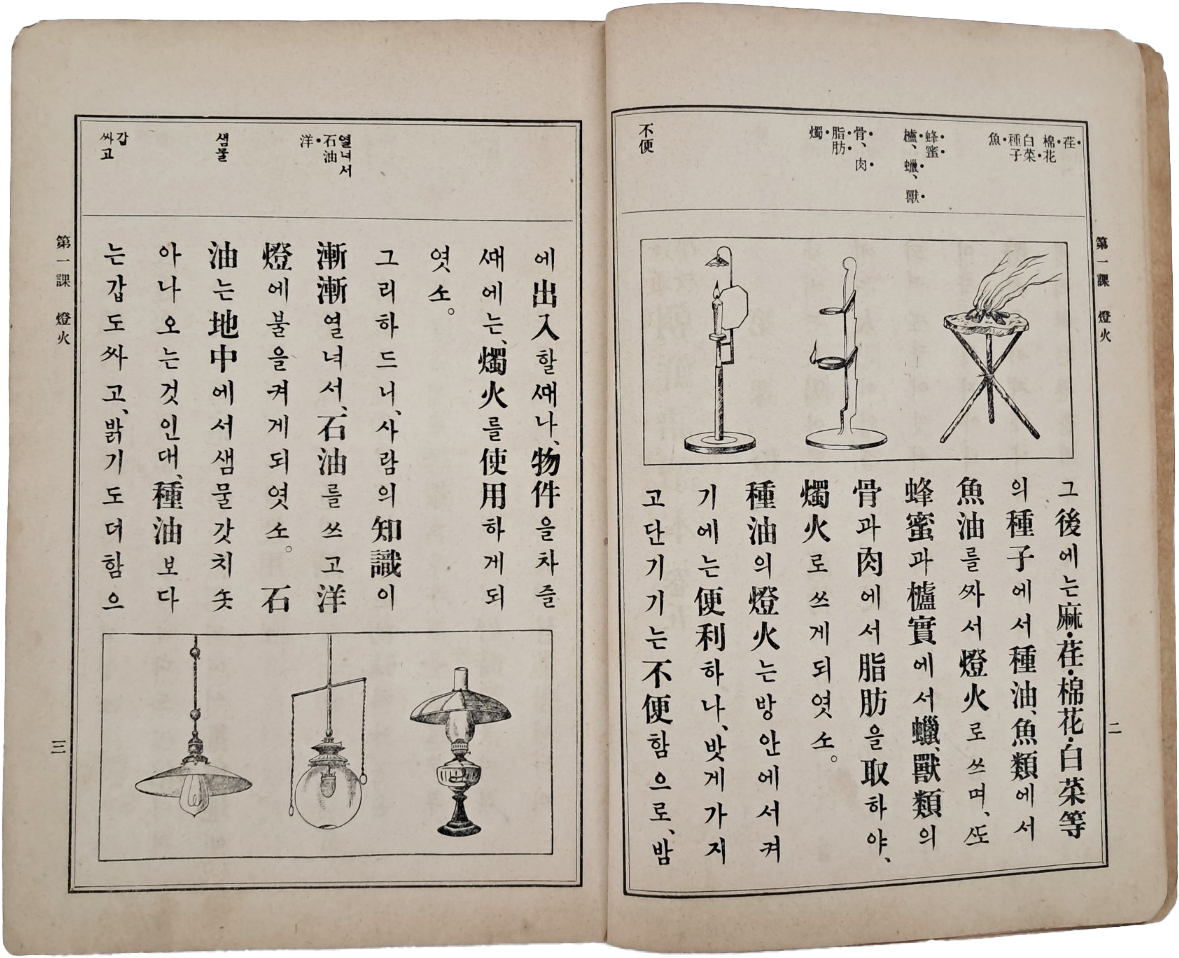 荏
棉花
白菜
種子
魚
蜂蜜
櫨、蠟、獸
骨、肉
脂肪
燭
不便
第一課 燈火
그後에는麻・荏・棉花・白菜等
의種子에서種油、魚類에서
魚油를ᄶᅡ서燈火로쓰며、ᄯᅩ
蜂蜜과櫨實에서蠟、獸類의
骨과肉에서脂肪을取하야、
燭火로쓰게되엿소。
種油의燈火는방안에서켜
기에는便利하나、밧게가지
고단기기는不便함으로、밤
二
열녀서
石油
洋
샘물
갑
싸고
에出入할ᄯᅢ나、物件을차즐
ᄯᅢ에는、燭火를使用하게되
엿소。
그리하드니、사람의知識이
漸漸열녀서、石油를쓰고洋
燈에불을켜게되엿소。石
油는地中에서샘물갓치솟
아나오는것인대、種油보다
는갑도싸고、밝기도더함으
第一課 燈火
三